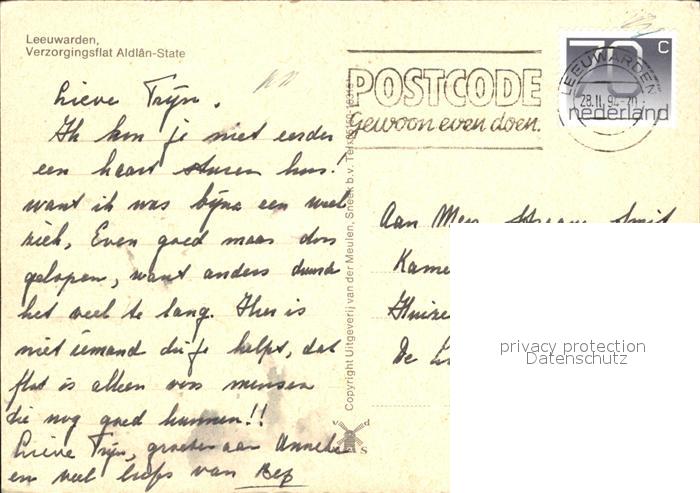 Leeuwarden,
Verzorgingsflat Aldlân-State
Lieve Trijn.
Ik kon je niet eerder
een kaart sturen hus!
want ik was bijna een week
ziek, Even goed maar door
gelopen, want anders duurde
het veel te lang. Hier is
niet iemand die je helpt, dat
flat is alleen voor mensen
die nog goed kunnen!!
Lieve Trijn, groeten aan Anneke
en veel liefs van Bep
Copyright Uitgeverij van der Meulen, Sneek b.v. Tel.
v d
M S
POSTCODE
Gewoon even doen.
LEEUWARDEN
28.II.94-20
70 c
nederland
Aan Mevr. Smit
Kame
Huize
De
privacy protection
Datenschutz